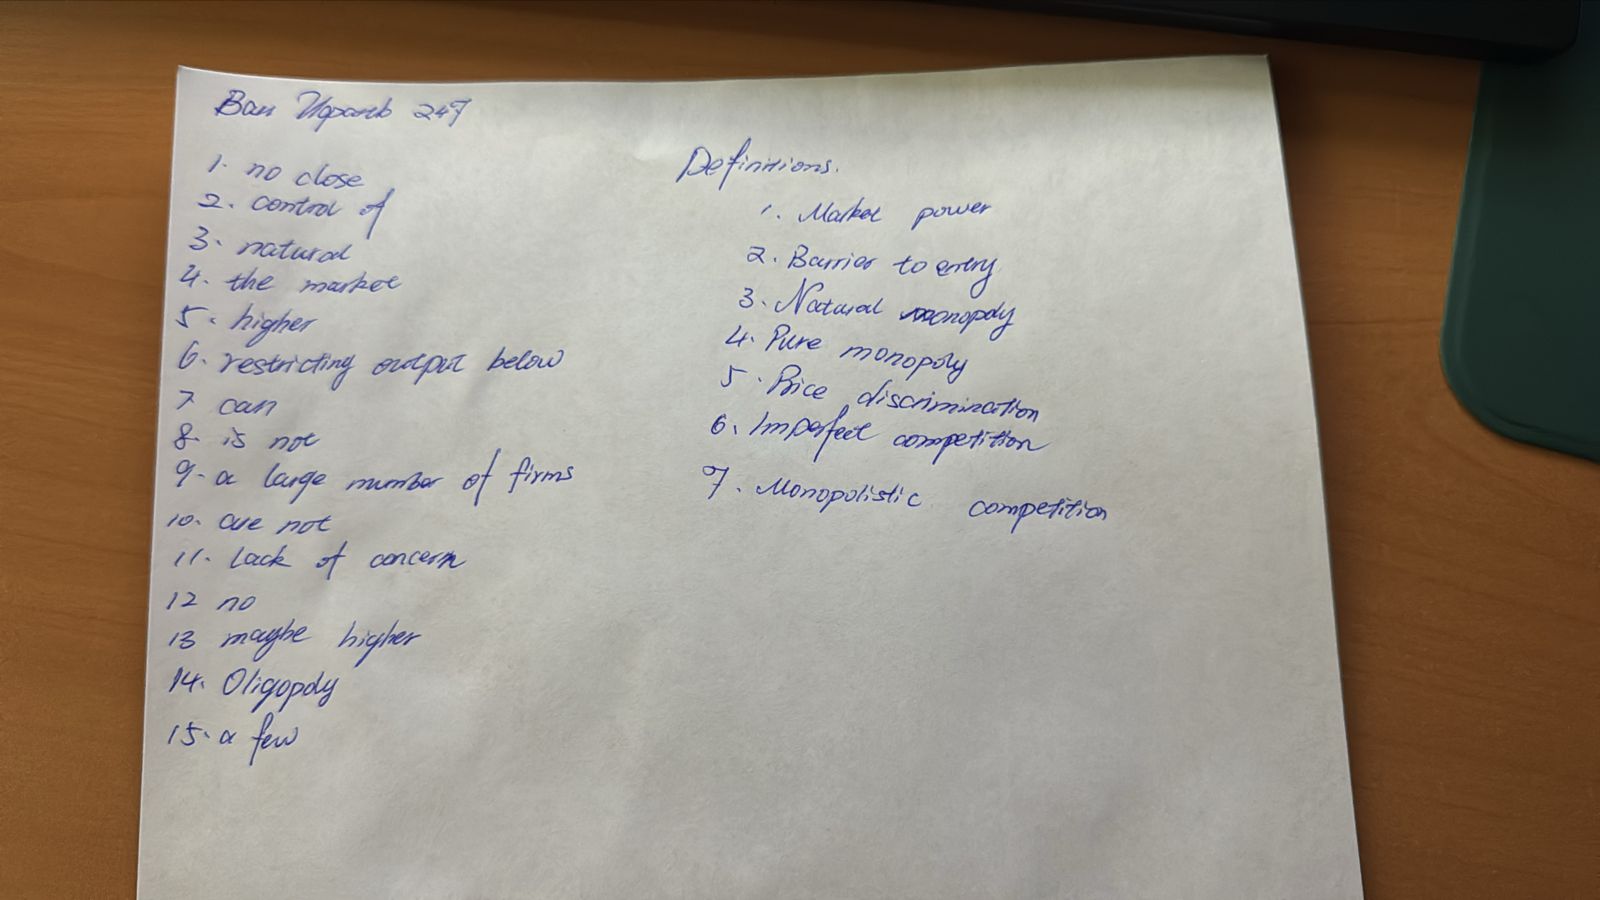 Ван 247
1. no close
2. control of
3. natural
4. the market
5. higher
6. restricting output below
7. can
8. is not
9. a large number of firms
10. are not
11. Lack of concern
12 no
13 maybe higher
14. Oligopoly
15. a few
Definitions.
1. Market power
2. Barrier to entry
3. Natural monopoly
4. Pure monopoly
5. Price discrimination
6. Imperfect competition
7. Monopolistic competition